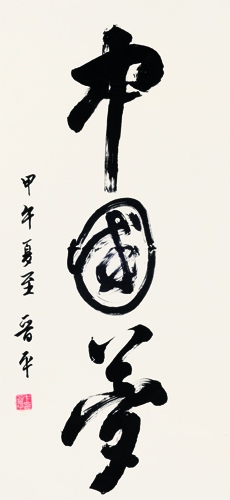 中国梦
甲午夏至 晋平